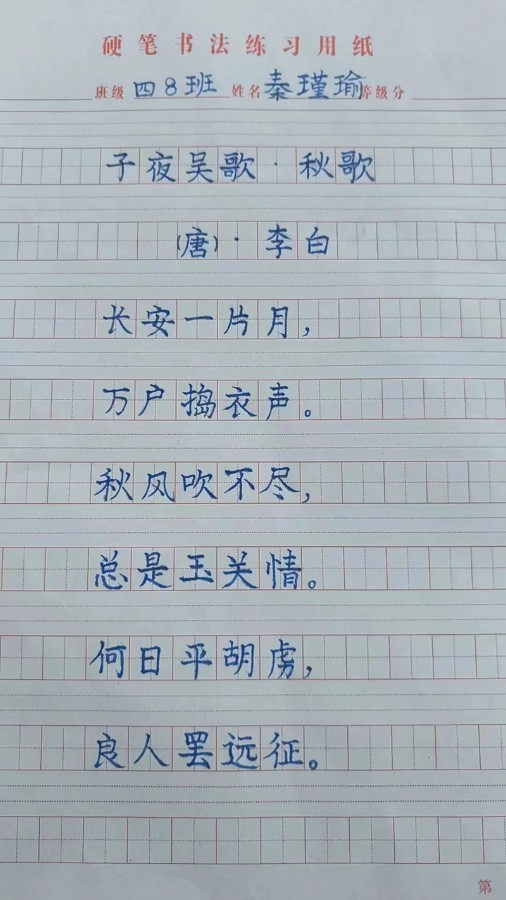 硬笔书法练习用纸
班级 四8班 姓名 秦瑾瑜 等级分
子夜吴歌·秋歌
(唐)·李白
长安一片月，
万户捣衣声。
秋风吹不尽，
总是玉关情。
何日平胡虏，
良人罢远征。
第